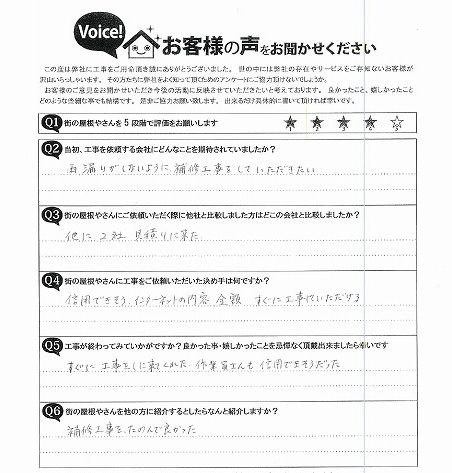 Voice!
お客様の声をお聞かせください
この度は弊社に工事をご用命頂き誠にありがとうございました。世の中には弊社の存在やサービスをご存知ないお客様が
沢山いらっしゃいます。その方たちに弊社をよく知って頂くためのアンケートにご協力頂けないでしょうか。
お客様のご意見をお聞かせいただき今後の活動に反映させていただきたいと考えております。良かったこと、嬉しかったこと
どのような些細な事でも結構です。是非ご協力お願い致します。出来るだけ具体的に書いて頂ければ幸いです。
Q1 街の屋根やさんを5段階で評価をお願いします ★ ★ ★ ★ ☆
Q2 当初、工事を依頼する会社にどんなことを期待されていましたか?
雨漏りがしないように、補修工事をしていただきたい
Q3 街の屋根やさんにご依頼いただく際に他社と比較しました方はどこの会社と比較しましたか?
他に、2社 見積りに来た
Q4 街の屋根やさんに工事をご依頼いただいた決め手は何ですか?
信用できそう、インターネットの内容 金額 すぐに工事していただける
Q5 工事が終わってみていかがですか?良かった事・嬉しかったことを忌憚なく頂戴出来ましたら幸いです
すぐに工事をしに来てくれた。作業員さんも信用できそうだった
Q6 街の屋根やさんを他の方に紹介するとしたらなんと紹介しますか?
補修工事を、たのんで良かった